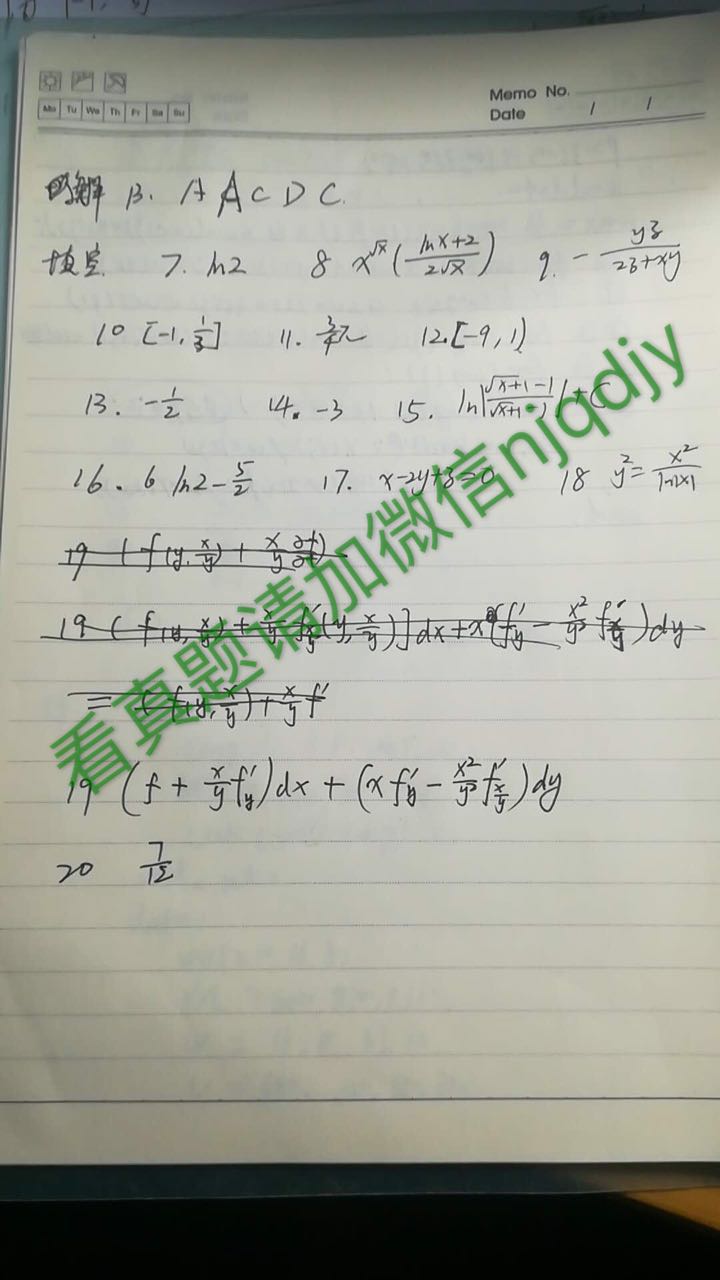 Memo No.
Mo Tu We Th Fr Sa Su
Date / /
B. A A C D C.
填空 7. ln2 8 x^√x((lnx+2)/(2√x)) 9. -yz/(2z+xy)
10 [-1, 1/3] 11. 3/4π 12. [-9, 1)
13. -1/2 14. -3 15. ln|(√(x+1)-1)/(√(x+1)-1)|+C
16. 6 ln2-5/2 17. x-2y+3=0 18 y²=x²/ln|x|
19 (f(y, x/y)+
19 (f(y, x/y)+x/y f'(y, x/y)]dx+x(f'y-x²/y² f')dy
= (f(y, x/y)+x/y f'
19 (f+x/y f'y)dx+(x f'y-x²/y² f'x/y)dy
20 7/12
看真题请加微信njqdjy